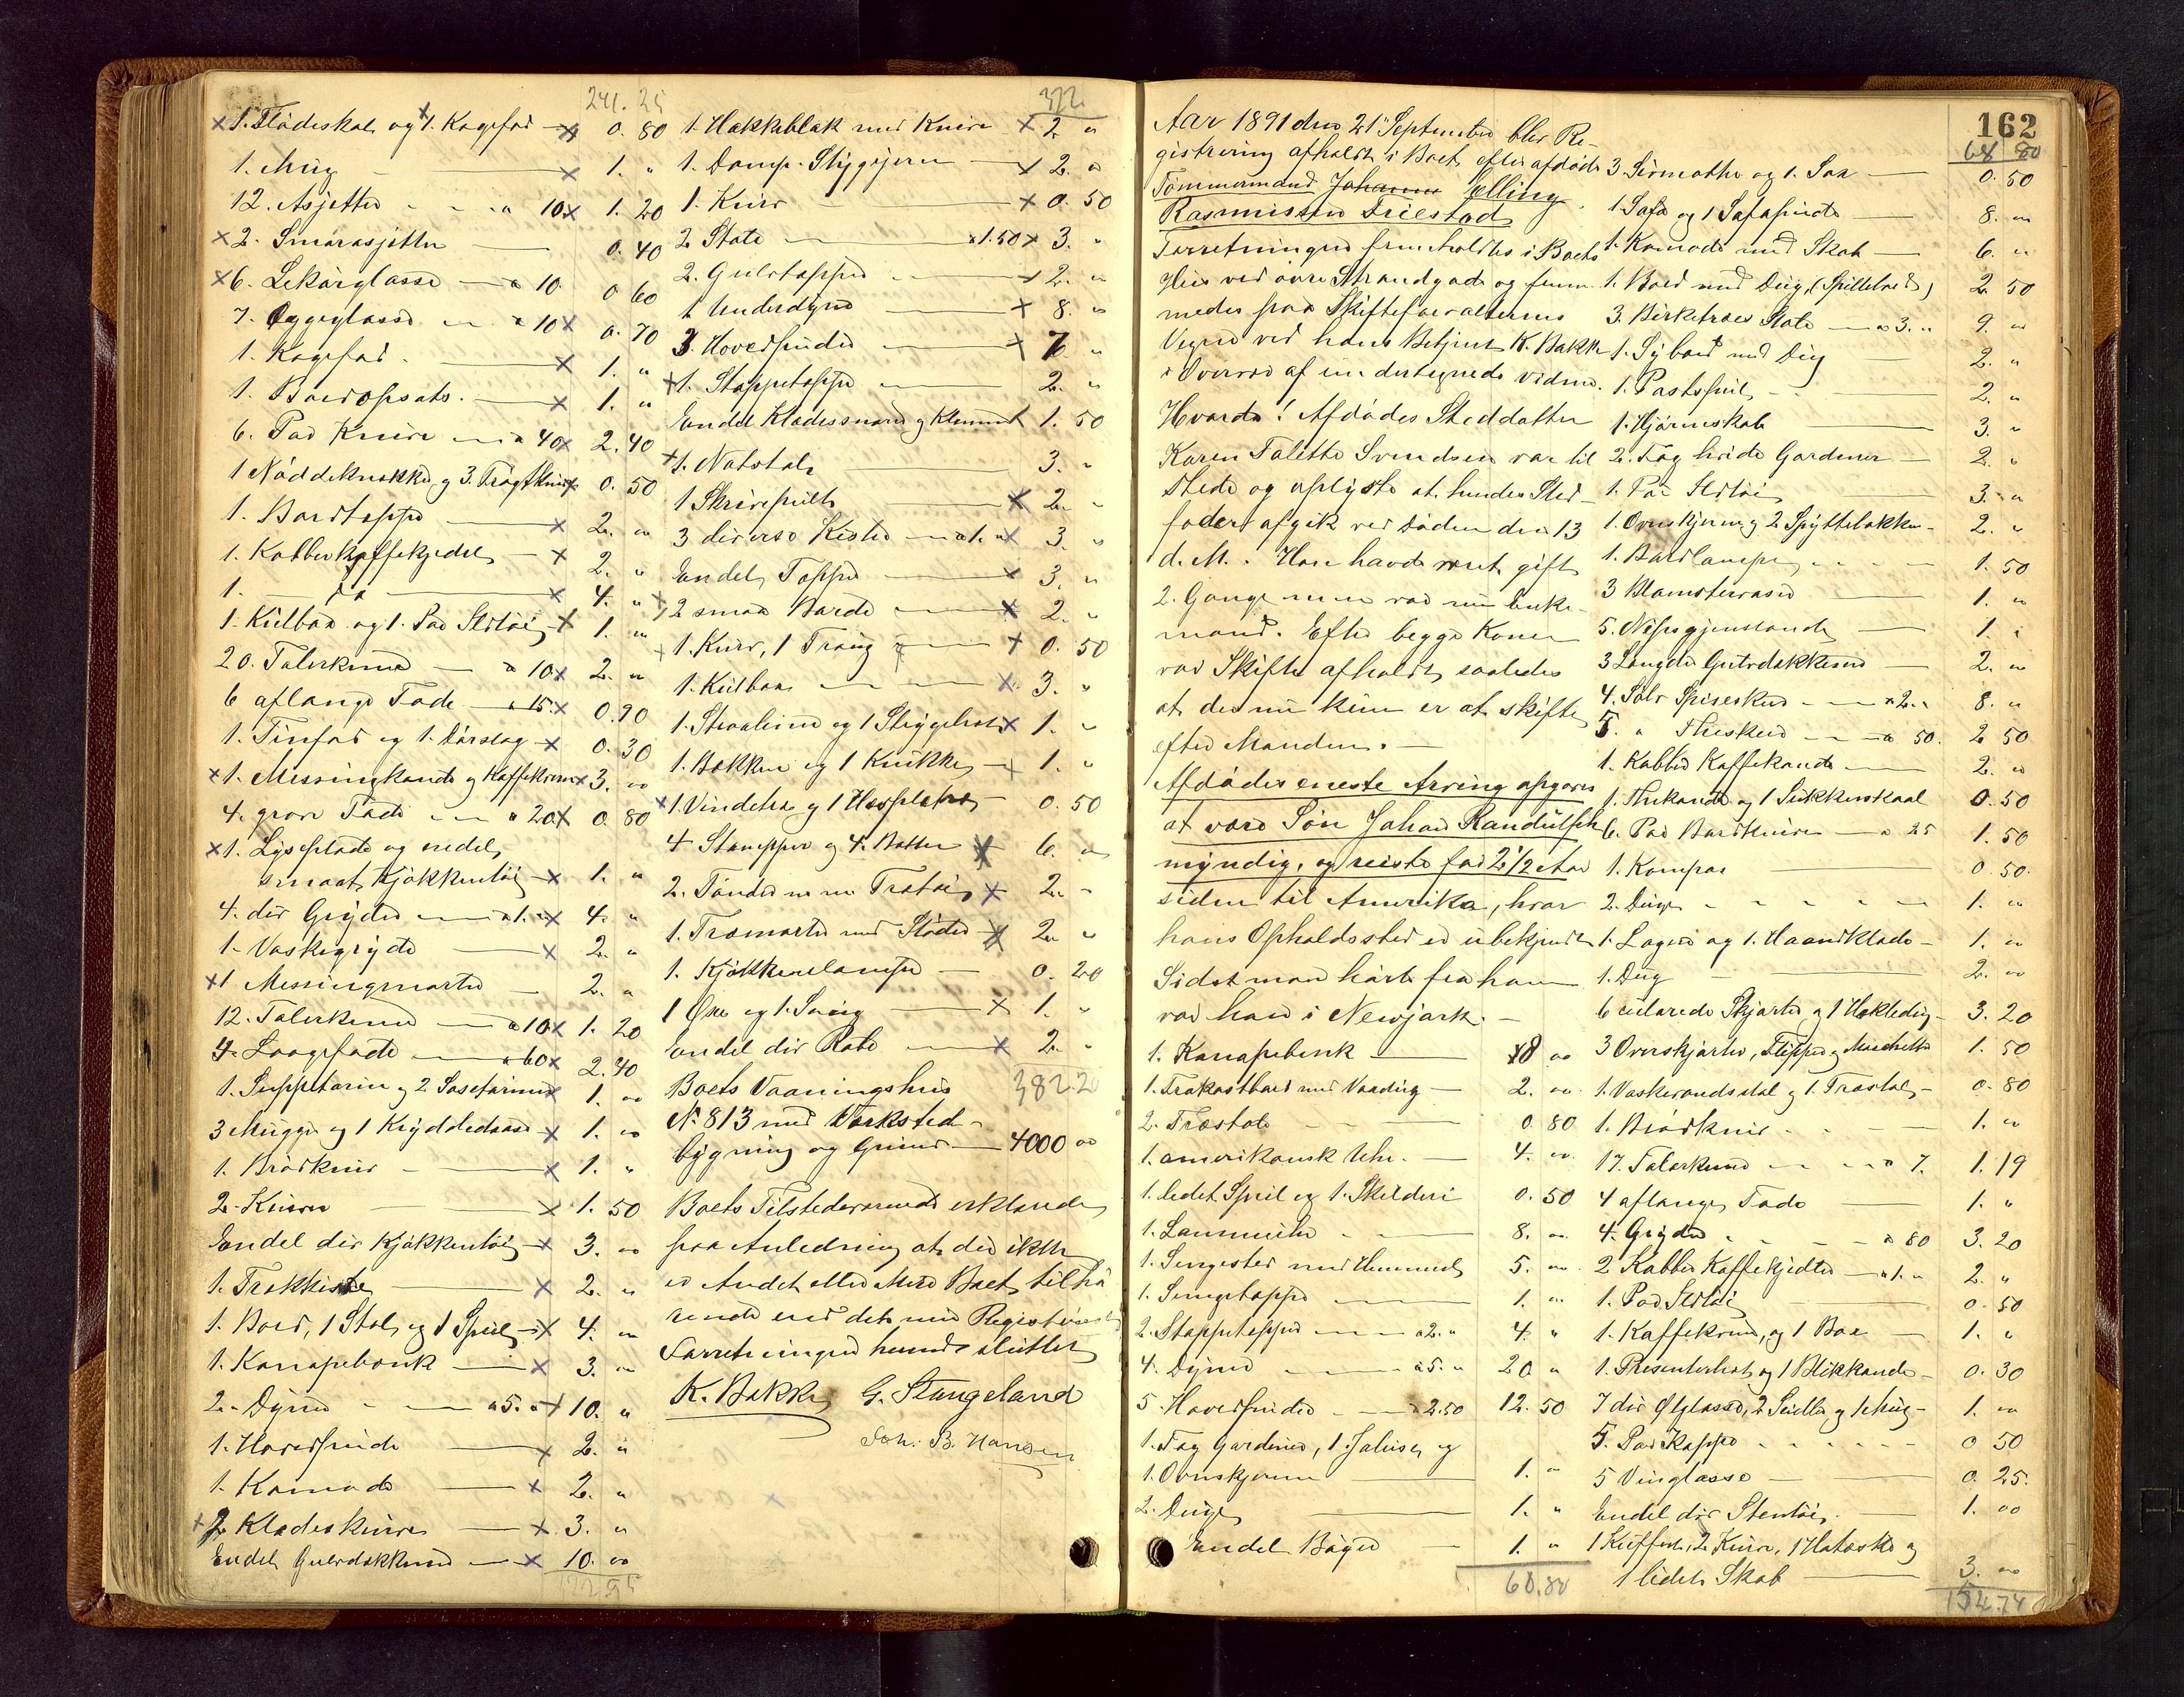 241.25
1. Flödeskal og 1. Kagefad 0. 80
1. Mug 1. "
12. Asjetter a 10 1. 20
2. Smørasjetter 0. 40
6. Lekørglasse a 10 0 60
7. Øggeglasse a 10 0. 70
1. Kagefad 1. "
1. Bordopsats. 1. "
6. Par Knive a 40 2. 40
1 Nøddeknækker og 3. 0. 50
1. Bordteppe 2. "
1. Kobberkaffekjedel 2. "
1. do 4. "
1. Kulbox og 1. Par Ildtøi 1. "
20. Talerkener a 10 2. "
6 aflange Fade a 15 0.90
1. Tinfad og 1. Dørslag 0. 30
1. Messingkande og Kaffekvern 3. "
4. grove Fade a 20 0. 80
1. Lyseplade og endel
smaat Kjøkkentøi 1. "
4. div Gryder a 1. " 4. "
1. Vaskegryde 2. "
1 Messingmorter 2. "
12. Talerkener a 10 1. 20
4. Laagefade a 60 2. 40
1. Suppeterin og 2 Soseteriner 1. "
3 Mugger og 1 Krydderdaase 1. "
1. Brødkniv 1. "
2. Kurve 1. 50
Endel div Kjøkkentøi 3. "
1. Trækkiste 2. "
1. Bord, 1 Stol og 1 Speil 4. "
1. Kanapebænk 3. "
2. Dyner a 5. " 10. "
1. Hovedpude 2. "
1. Komode 2. "
2 Klædeskurve 3. "
Endel Gulvdækkener 10. "
322
1. Hakkeblok med Kniv 2. "
1. Damp-Strygejern 2. "
1. Kurv 0. 50
2 Stole a 1.50 3. "
2. Gulvtepper 2. "
1 Underdyne 8. "
3. Hovedpuder 7. "
1. Stoppeteppe 2. "
Endel Klædessnore og Klemmer 1. 50
1. Natstol 3. "
1 Skrivepult 2. "
3 diverse Kister a 1. " 3. "
Endel Tepper 3. "
2 smaa Borde 2. "
1. Kurv, 1 Traug 0. 50
1. Kulbox 3. "
1. og 1 Strygebret 1. "
1. Bøkker og 1 Krukke 1. "
1 Vindetræ og 1 Haspetræ 0. 50
4 Stamper og 4. Bøtter 6. "
2. Tønder m m Trætøi 2. "
1. Træmorter med Støder 2. "
1. Kjøkkenlampe 0. 20
1 Øxe og 1. Saug 1. "
Endel div Rob 2. "
382.20
Boets Vaaningshus
No 813 med Værksted-
bygning og Grund 4000 "
Boets Tilstedeværende erklærede
paa Anledning at der ikke
er Andet eller Mere Boet tilhø
rende end det nu Registrerede
Forretningen hermed sluttet
K. Bakke G. Stangeland
Joh. B. Hansen
162
Aar 1891 den 21 September blev Re-
gistrering afholdt i Boet efter afdøde
Tømmermand Johannes Elling
Rasmussen Friestad
Forretningen fremholdtes i Boets
Hus ved øvre Strandgade og frem-
medes paa Skifteforvalterens
Vegne ved hans Betjent K. Bakke
i Overvær af undertegnede Vidner.
Hvorda! Afdødes Steddatter
Karen Talette Svendsen var til
stede og oplyste at hendes Sted-
fader afgik ved Døden den 13
d. M. Han havde været gift
2. Gange men var nu Enke-
mand. Efter begge Koner
var Skifte afholdt saaledes
at der nu kun er at skifte
efter Manden.
Afdødes eneste Arving opgaves
at være Søn Johan Randulf
myndig, og reiste for 2 1/2 Aar
siden til Amerika, hvor
hans Opholdssted er ubekjendt
Sidst man hørte fra ham
var han i Newjork.
1. Kanapebenk 8 "
1. Frokostbord med Voxdug 2. "
2. Træstole 0. 80
1. amerikansk Uhr 4. "
1. lidet Speil og 1. Skilderi 0. 50
1. Lommeuhr 8. "
1. Sengested med Himmel 5. "
1. Sengeteppe 1. "
2. Stoppetepper a 2. " 4. "
4. Dyner a 5. " 20 "
5. Hovedpuder a 2.50 12. 50
1. Fag Gardiner, 1. Jalusi og
1. Ovnskjerm 1. "
2. Duge 1. "
Endel Bøger 1. "
68.80
68 80
3. og 1. Sax 0. 50
1 Sofa og 1 Sofapude 8. "
1. Komode med Skab 6. "
1. Bord med Dug (Spillebord) 2 50
3. Birketræes Stole a 3. " 9. "
1. Sybord med Dug 2. "
1. 2. "
1. Hjørneskab 3. "
2. Fag hvide Gardiner 2. "
1. Par Ildtøi 3. "
1. Ovnskjerm og 2 Spyttebakker 2. "
1. Bordlampe 1. 50
3 Blomstervaser 1. "
5. Nipsgjenstande 1. "
3 Længder Gulvdækkener 2. "
4. Sølv Spiseskeer a 2. " 8. "
5. " Theskeer a 50 2 50
1. Kobber Kaffekande 2. "
1. Thekande og 1 Sukkerskaal 0. 50
6. Par Bordknive a 25 1. 50
1. Kompas 0 50.
2. Duge 1. "
1. Lagen og 1. Haandklæde 1. "
1. Dug 2. "
6 culørede Skjorter og 1 Hekledug 3. 20
3 Overskjorter, Flipper og Manchetter 1. 50
1. Vaskevandsstol og 1. Træstol 0. 80
1. Brødkniv 1. "
17. Talerkener a 7. 1. 19
4 aflange Fade 1. "
4. Gryder a 80 3. 20
2 Kobber Kaffekjedler a 1. " 2. "
1. Par Ildtøi 0. 50
1. Kaffekvern, og 1 Box 1. "
1. Presenterbret og 1 Blikkande 0. 30
7 div Ølglasse, 2 og 1 Mug 1. "
5. Par Kopper 0 50
5 Vinglasse 0. 25.
Endel div Stentøi 1. 00
1 Kuffert, 2 Kurve, 1 Hatæske og
1 lidet Skab 3. "
154.74